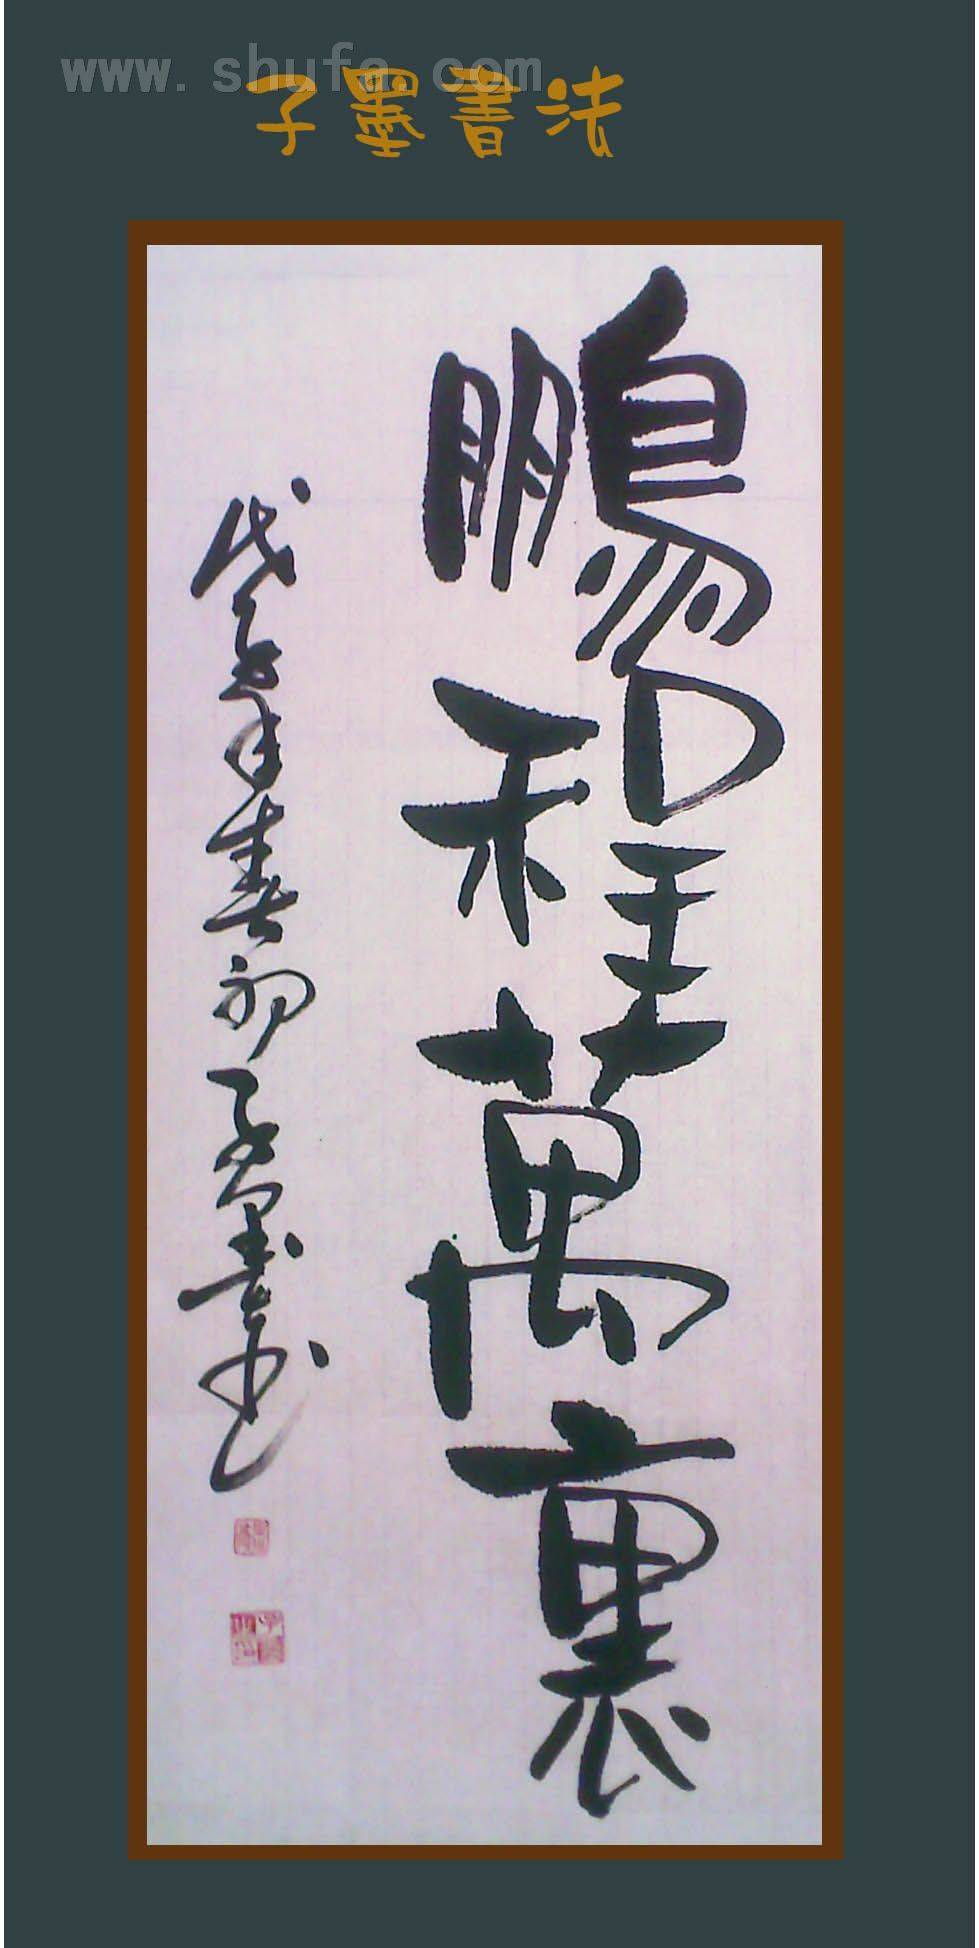 www.shufa.com
子墨書法
鵬程萬裏
戊子年春初子墨书